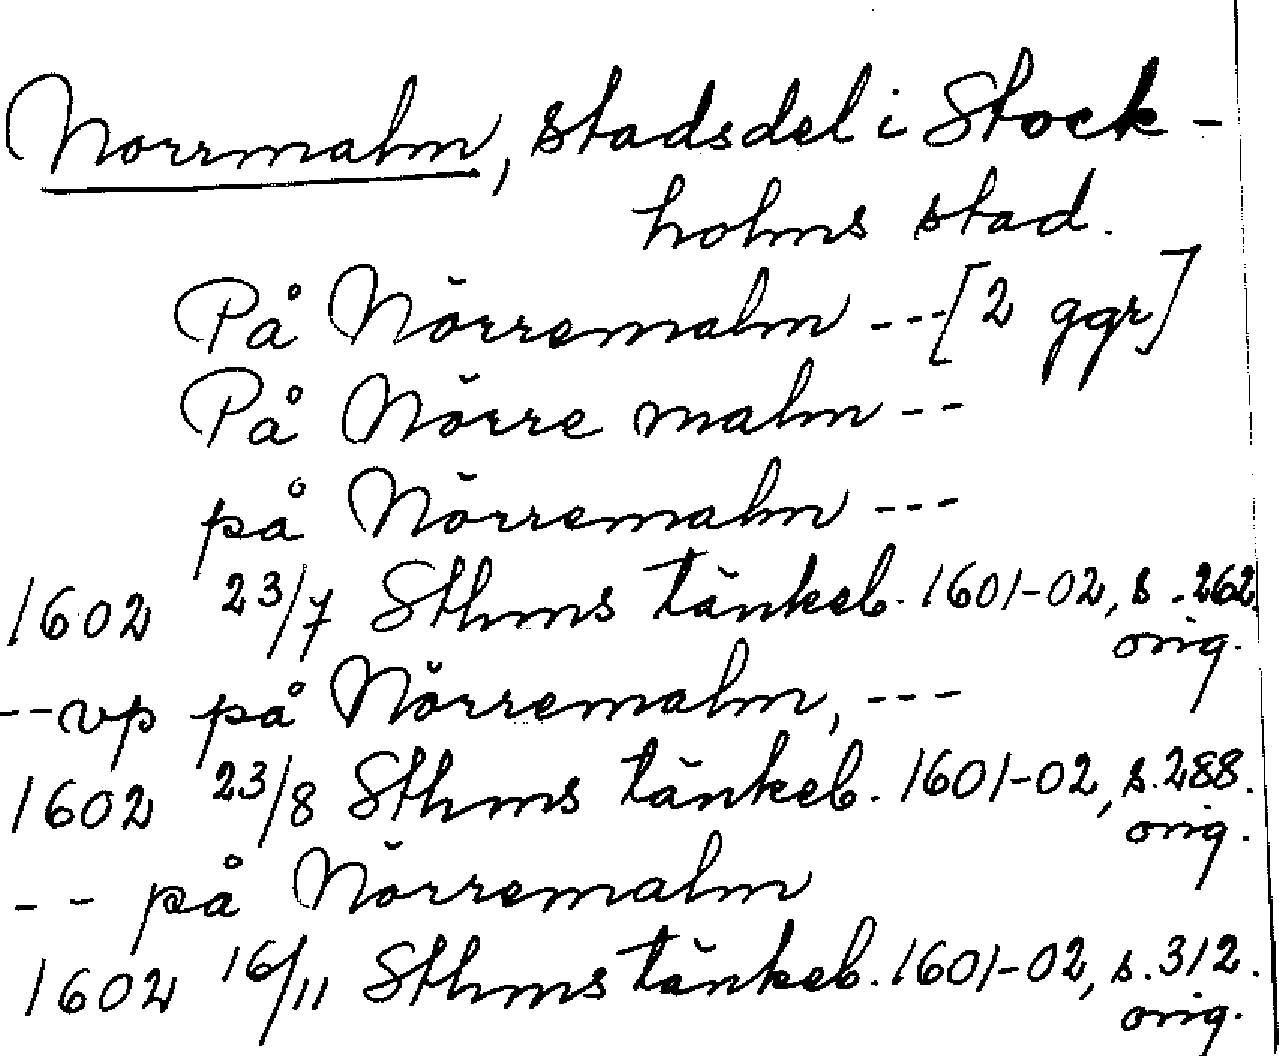 Norrmalm, stadsdel i Stock-
holms stad.
På Nörremalm ---[2 ggr]
På Nörre malm --
på Nörremalm ---
1602 23/7 Sthms tänkeb. 1601-02, s. 262
orig.
--vp på Nörremalm, ---
1602 23/8 Sthms tänkeb. 1601-02, s. 288.
orig.
-- på Nörremalm
1602 16/11 Sthms tänkeb. 1601-02, s. 312.
orig.